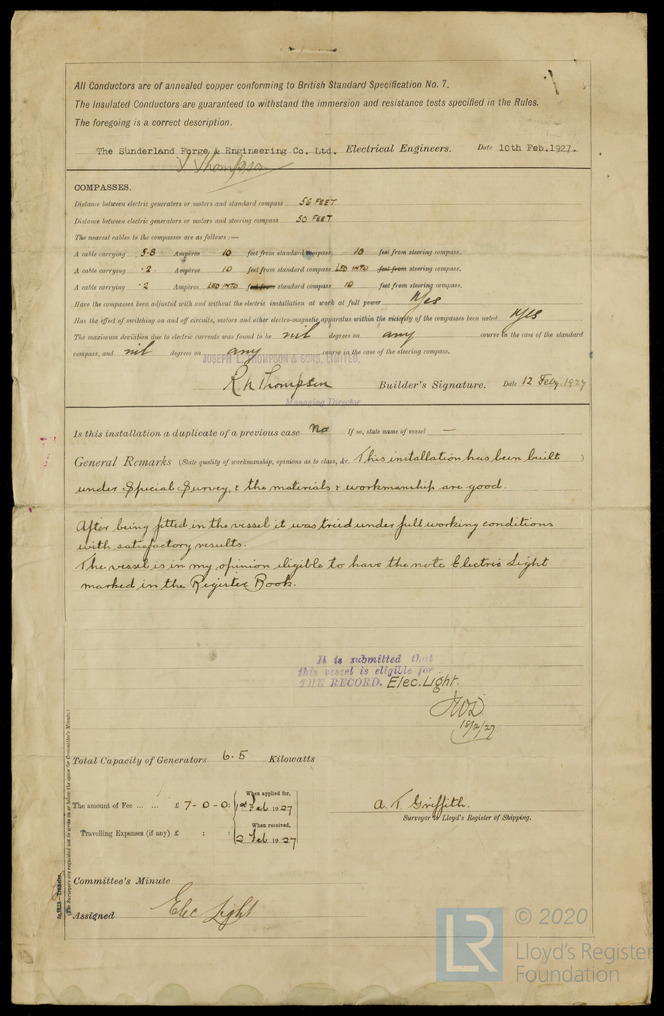 All Conductors are of annealed copper conforming to British Standard Specification No. 7.
The Insulated Conductors are guaranteed to withstand the immersion and resistance tests specified in the Rules.
The foregoing is a correct description.
The Sunderland Forge & Engineering Co. Ltd. Electrical Engineers. Date 10th Feb.1927.
Thompson
COMPASSES.
Distance between electric generators or motors and standard compass 56 FEET
Distance between electric generators or motors and steering compass 50 FEET
The nearest cables to the compasses are as follows :—
A cable carrying 5.8 Ampères 10 feet from standard compass 10 feet from steering compass.
A cable carrying .2 Ampères 10 feet from standard compass LED INTO feet from steering compass.
A cable carrying .2 Ampères LED INTO feet from standard compass 10 feet from steering compass.
Have the compasses been adjusted with and without the electric installation at work at full power Yes
Has the effect of switching on and off circuits, motors and other electro-magnetic apparatus within the vicinity of the compasses been noted Yes
The maximum deviation due to electric currents was found to be nil degrees on any course in the case of the standard
compass, and nil degrees on any course in the case of the steering compass.
JOSEPH L. THOMPSON & SONS, LIMITED,
R N Thompson Builder's Signature. Date 12 Feby. 1927
Managing Director
Is this installation a duplicate of a previous case No If so, state name of vessel —
General Remarks (State quality of workmanship, opinions as to class, &c. This installation has been built )
under Special Survey, & the materials & workmanship are good.
After being fitted in the vessel it was tried under full working conditions
with satisfactory results.
The vessel is in my opinion eligible to have the note Electric Light
marked in the Register Book.
It is submitted that
this vessel is eligible for
THE RECORD. Elec. Light.
18/2/27
Total Capacity of Generators 6.5 Kilowatts
The amount of Fee ... ... £ 7-0-0 : When applied for, Feb 1927
When received,
Travelling Expenses (if any) £ : : 2 Feb 1927
A. T. Griffith.
Surveyor to Lloyd's Register of Shipping.
Committee's Minute
Assigned Elec Light
(The Surveyors are requested not to write on or below the space for Committee's Minute.)
Transfer.
LR © 2020
Lloyd's Register
Foundation